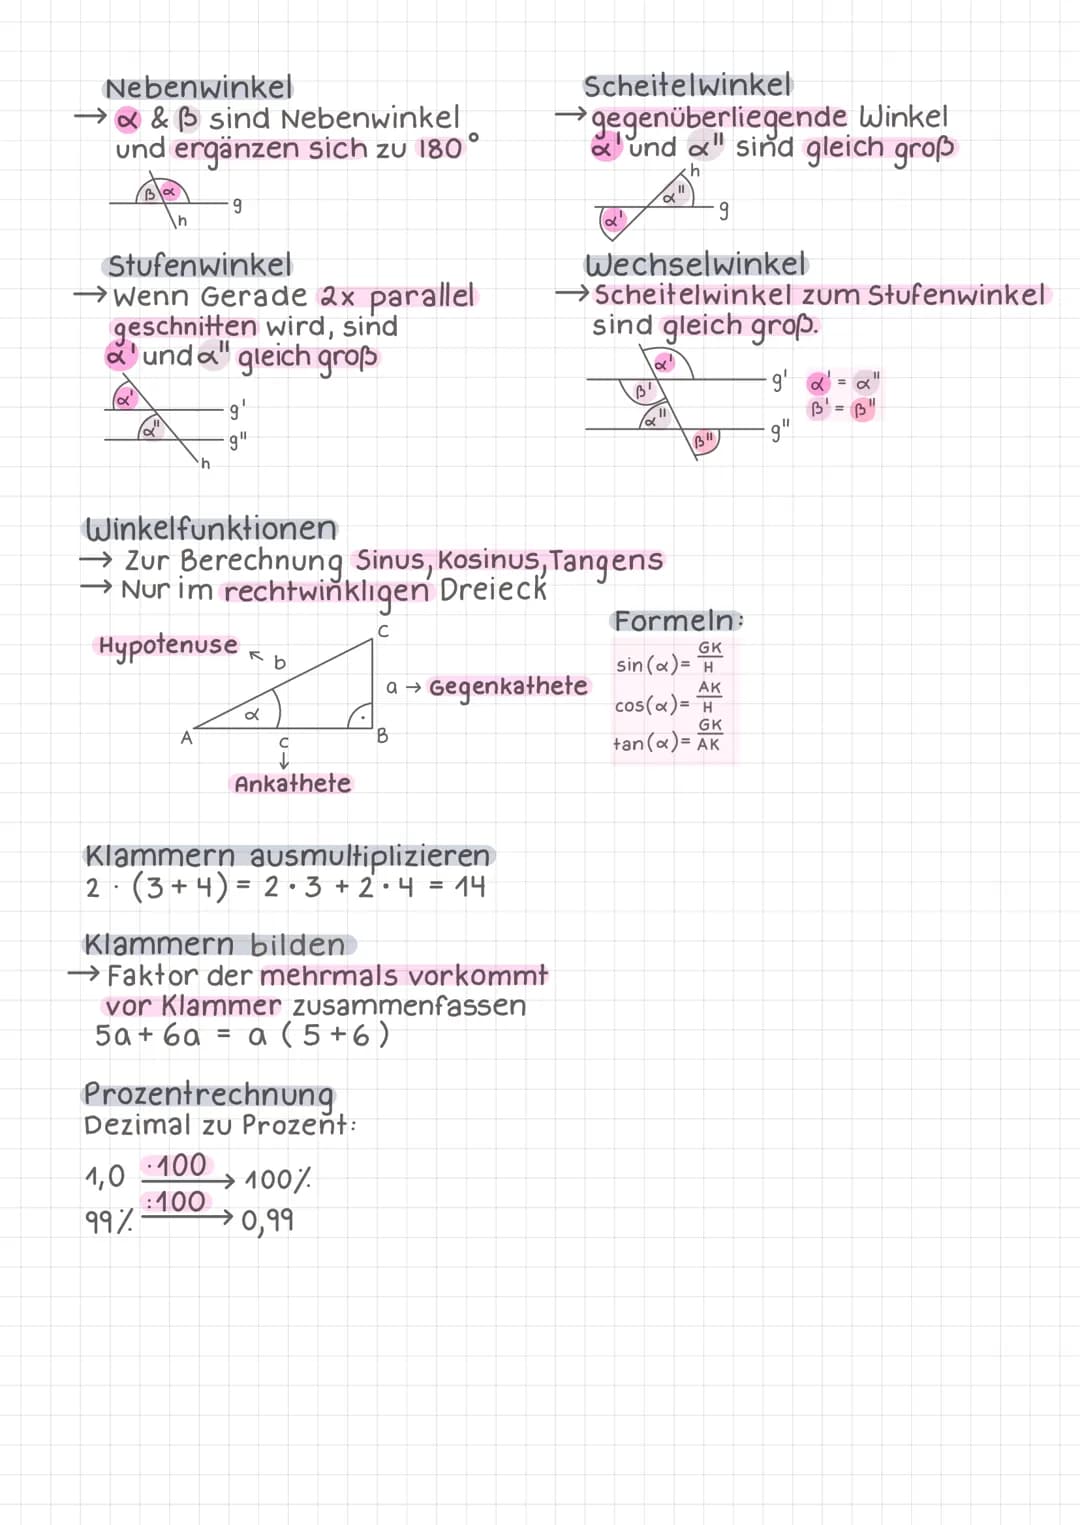 Nebenwinkel
→ α & β sind Nebenwinkel
und ergänzen sich zu 180°
β α
g
h
Scheitelwinkel
→ gegenüberliegende Winkel
α' und α'' sind gleich groß
h
α''
g
α'
Stufenwinkel
→ Wenn Gerade 2x parallel
geschnitten wird, sind
α' und α'' gleich groß
α'
g'
α''
g''
h
Wechselwinkel
→ Scheitelwinkel zum Stufenwinkel
sind gleich groß.
α'
g' α' = α''
β' β' = β''
α''
g''
β''
Winkelfunktionen
→ Zur Berechnung Sinus, Kosinus, Tangens
→ Nur im rechtwinkligen Dreieck
Hypotenuse
b
C
a → Gegenkathete
α
A
c
B
↓
Ankathete
Formeln:
sin(α) = GK/H
cos(α) = AK/H
tan(α) = GK/AK
Klammern ausmultiplizieren
2 · (3 + 4) = 2 · 3 + 2 · 4 = 14
Klammern bilden
→ Faktor der mehrmals vorkommt
vor Klammer zusammenfassen
5a + 6a = a (5 + 6)
Prozentrechnung
Dezimal zu Prozent:
1,0 ·100 → 100%
99% :100 → 0,99